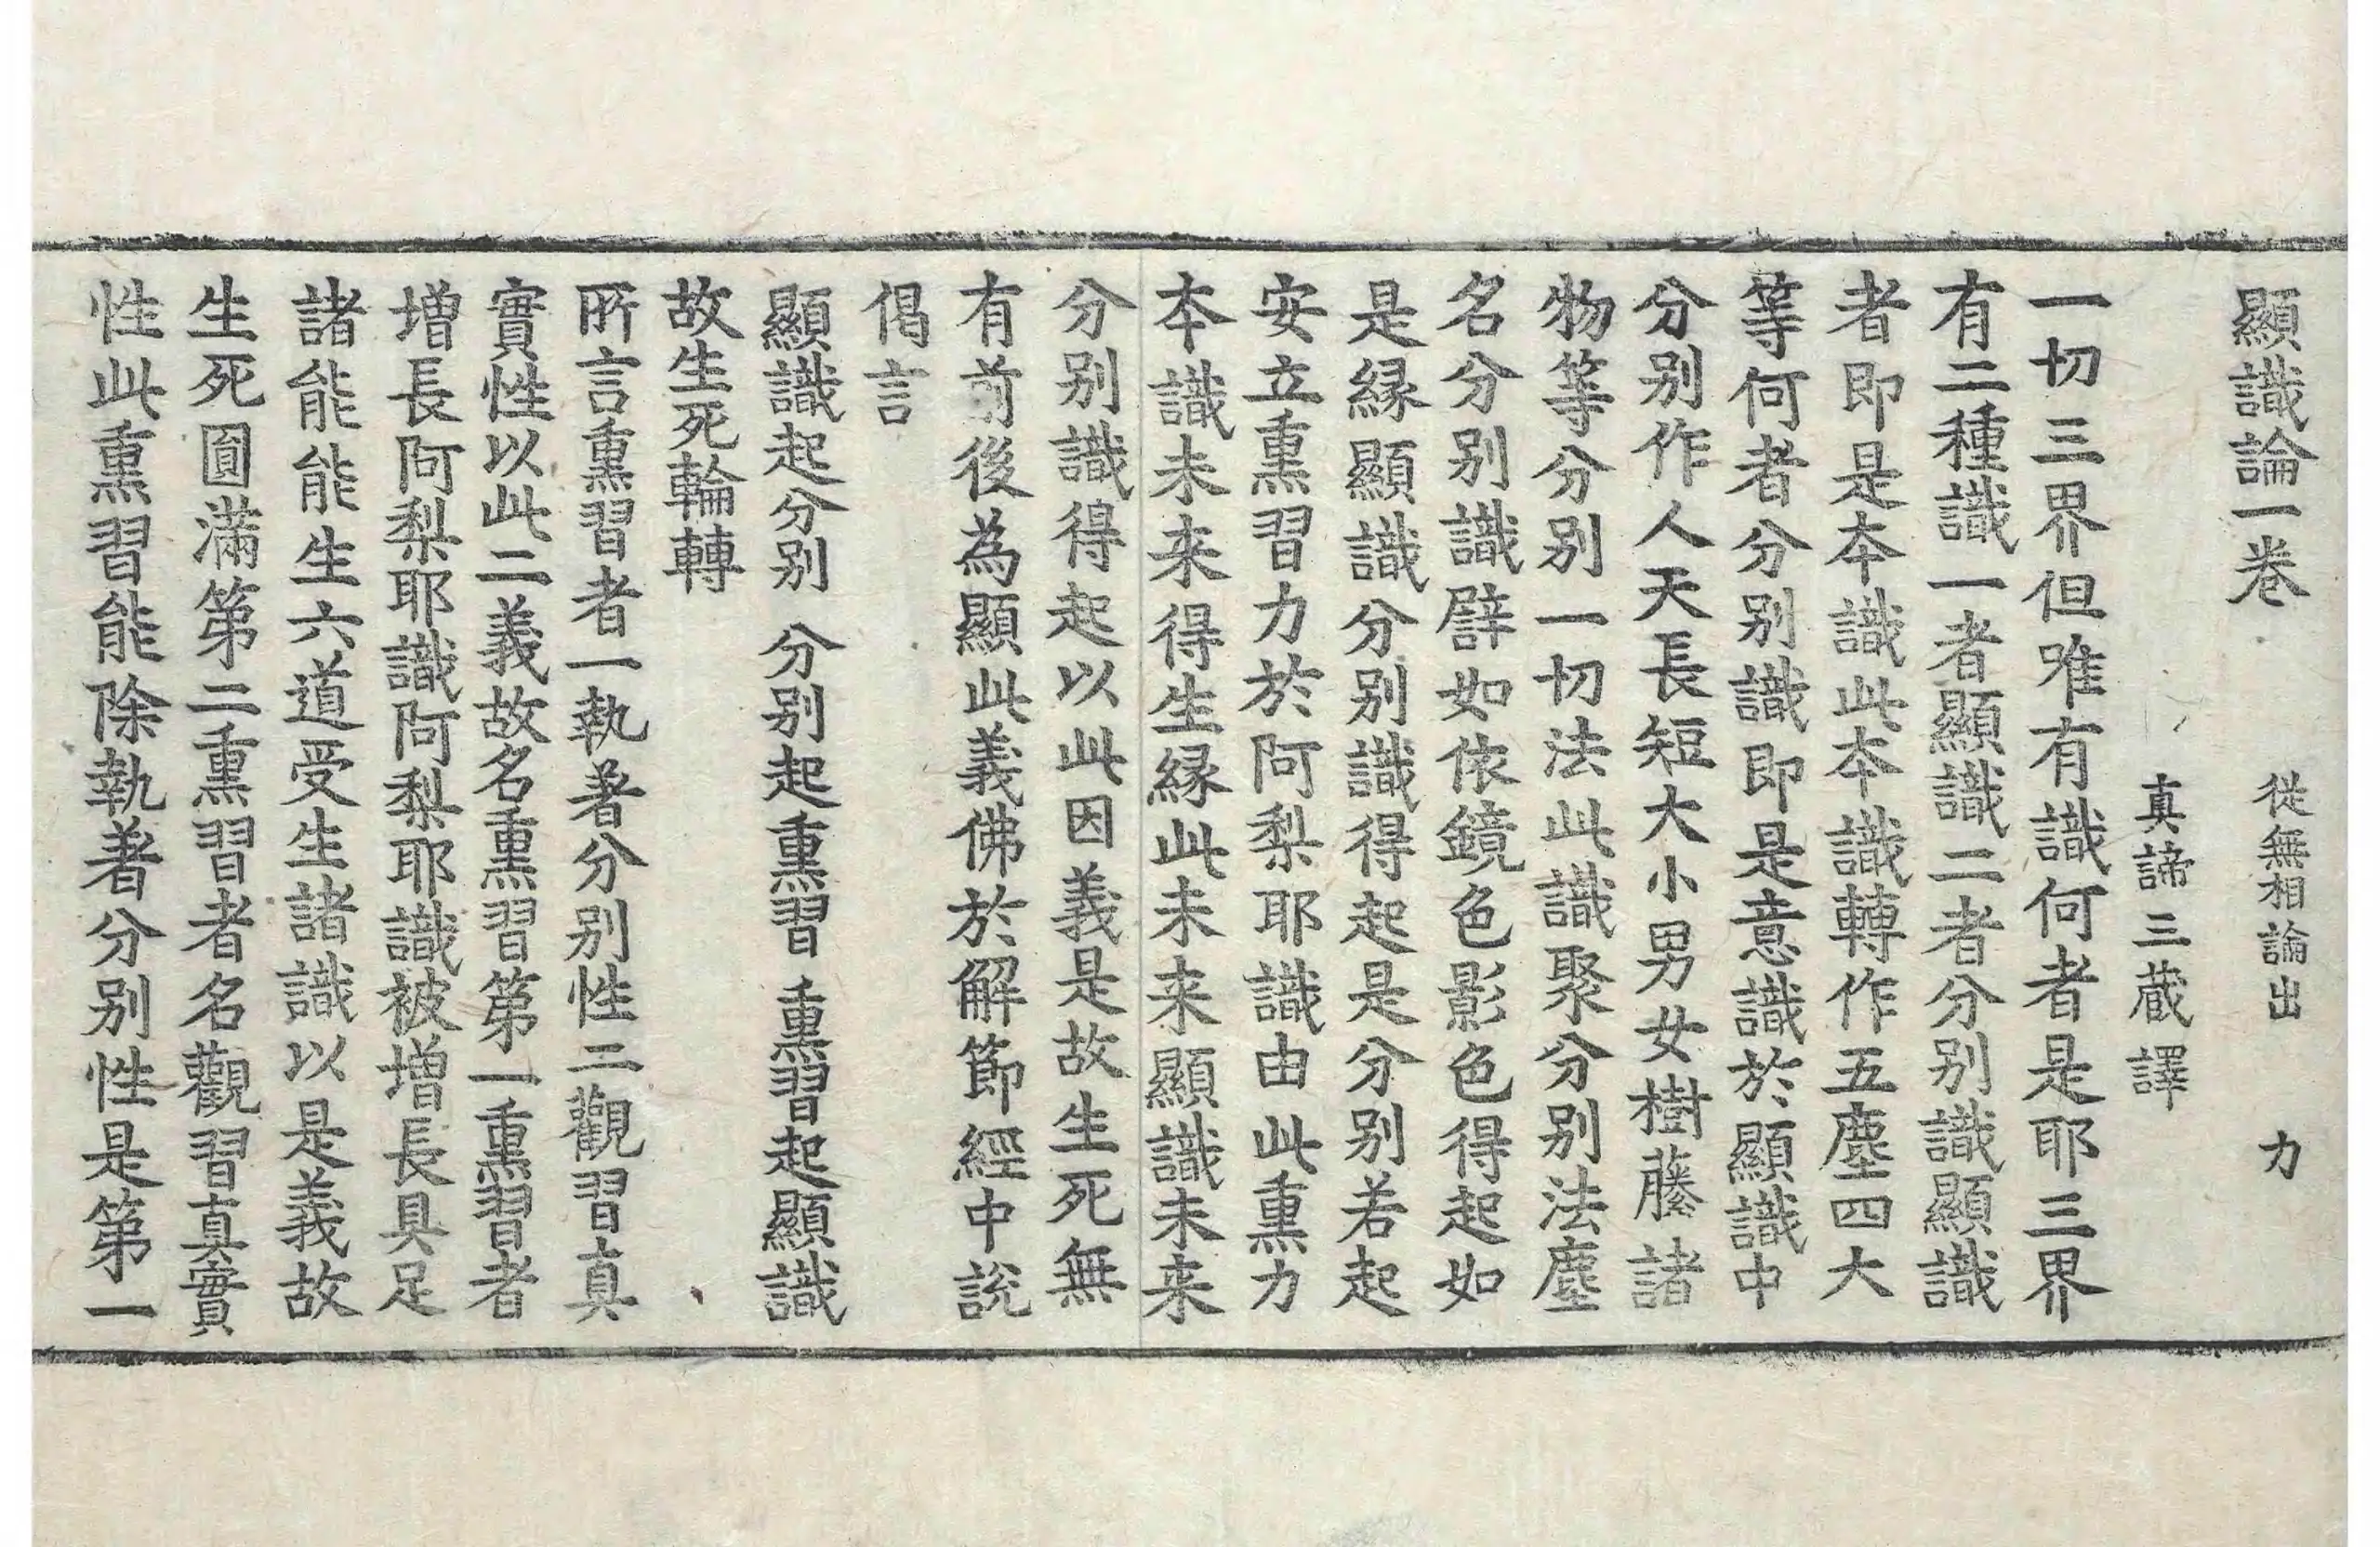 顯識論一卷 從無相論出 力
真諦三藏譯
一切三界但唯有識何者是耶三界
有二種識一者顯識二者分別識顯識
者即是本識此本識轉作五塵四大
等何者分別識即是意識於顯識中
分別作人天長短大小男女樹藤諸
物等分別一切法此識聚分別法塵
名分別識譬如依鏡色影色得起如
是緣顯識分別識得起是分別若起
安立熏習力於阿梨耶識由此熏力
本識未来得生緣此未来顯識未来
分別識得起以此因義是故生死無
有前後為顯此義佛於解節經中說
偈言
顯識起分別 分別起熏習 熏習起顯識
故生死輪轉
所言熏習者一執著分別性二觀習真
實性以此二義故名熏習第一熏習者
增長阿梨耶識阿梨耶識被增長具足
諸能能生六道受生諸識以是義故
生死圓滿第二熏習者名觀習真實
性此熏習能除執著分別性是第一